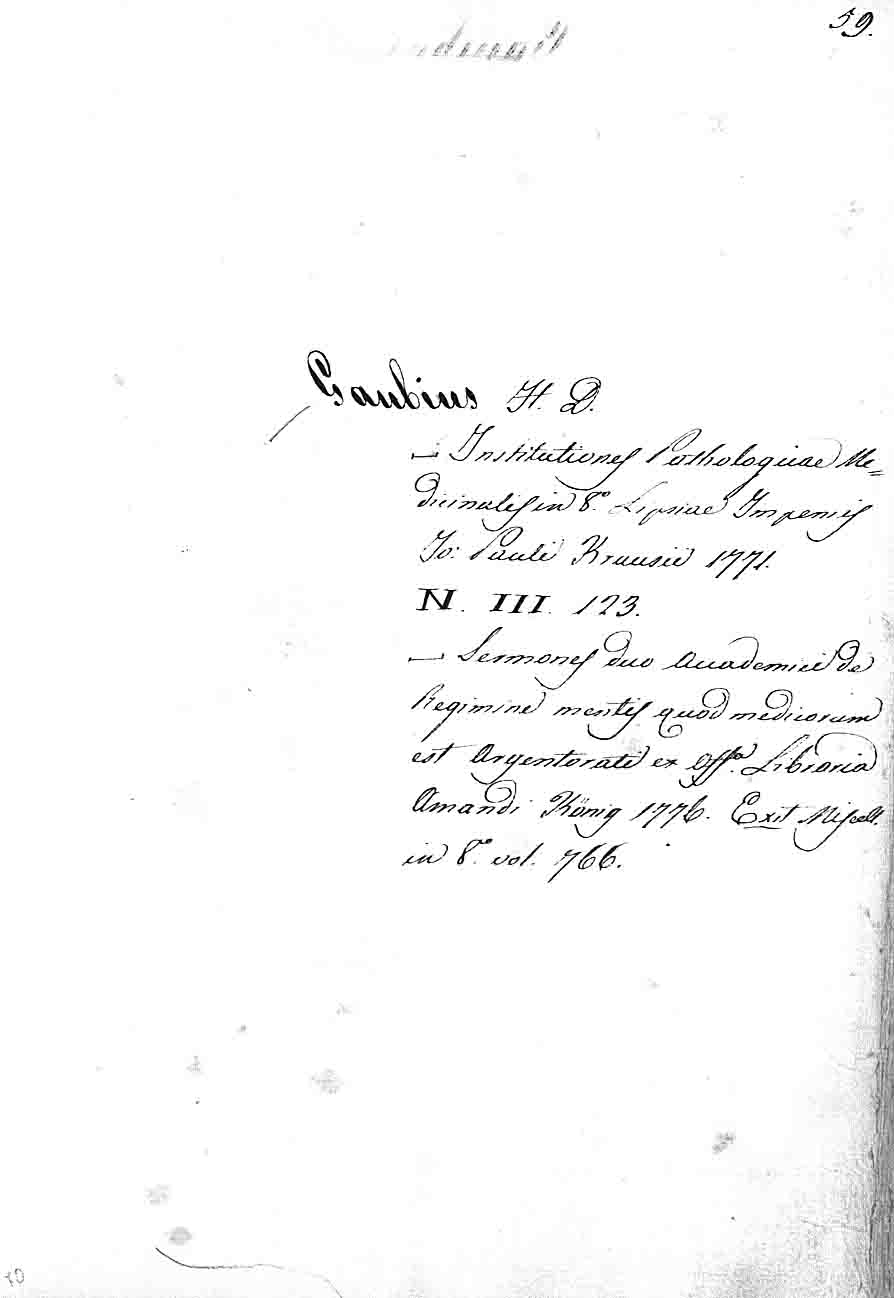 59.
Gaubius H. D.
— Institutiones Pathologiae Me=
dicinalis in 8.° Lipsiae Impensis
Jo: Pauli Krausii 1771.
N. III. 123.
— Sermones duo Academici de
Regimine mentis quod medicorum
est Argentorati ex Off.ª Libraria
Amandi König 1776. Exit Miscell.
in 8.° vol. 766.